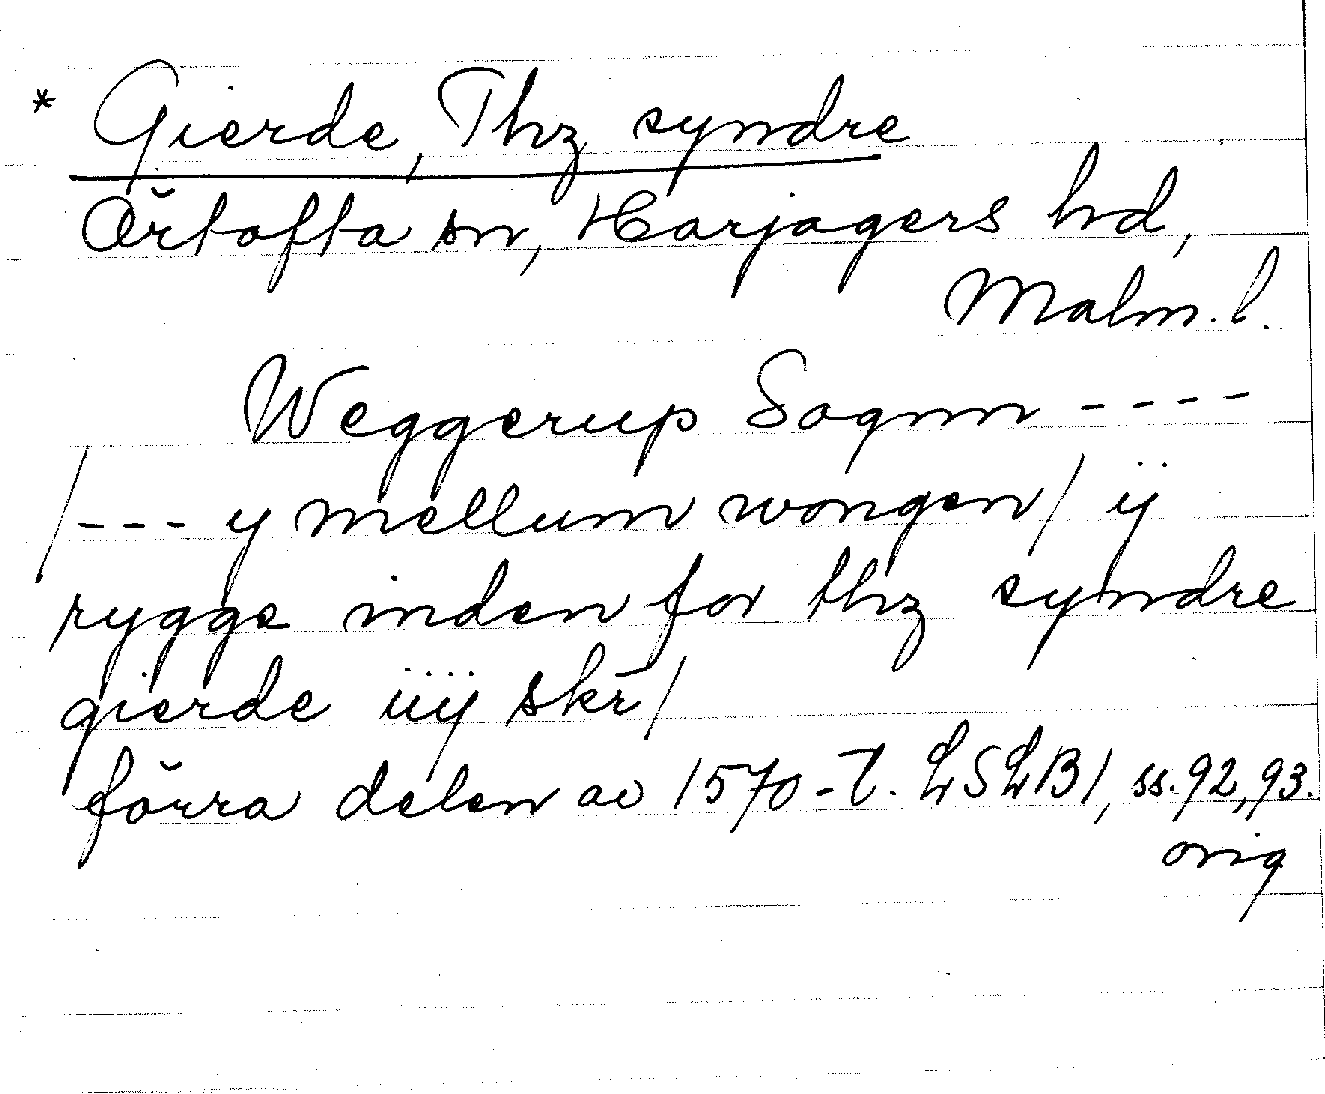 * Gierde, Thz syndre
Örtofta sn, Harjagers hd,
Malm. l.
Weggerup Sognn ----
/--- y mellum wongen/ ÿ
rygge inden for thz syndre
gierde iiÿ skr/
förra delen av 1570-t. LSLB1, ss. 92, 93.
orig